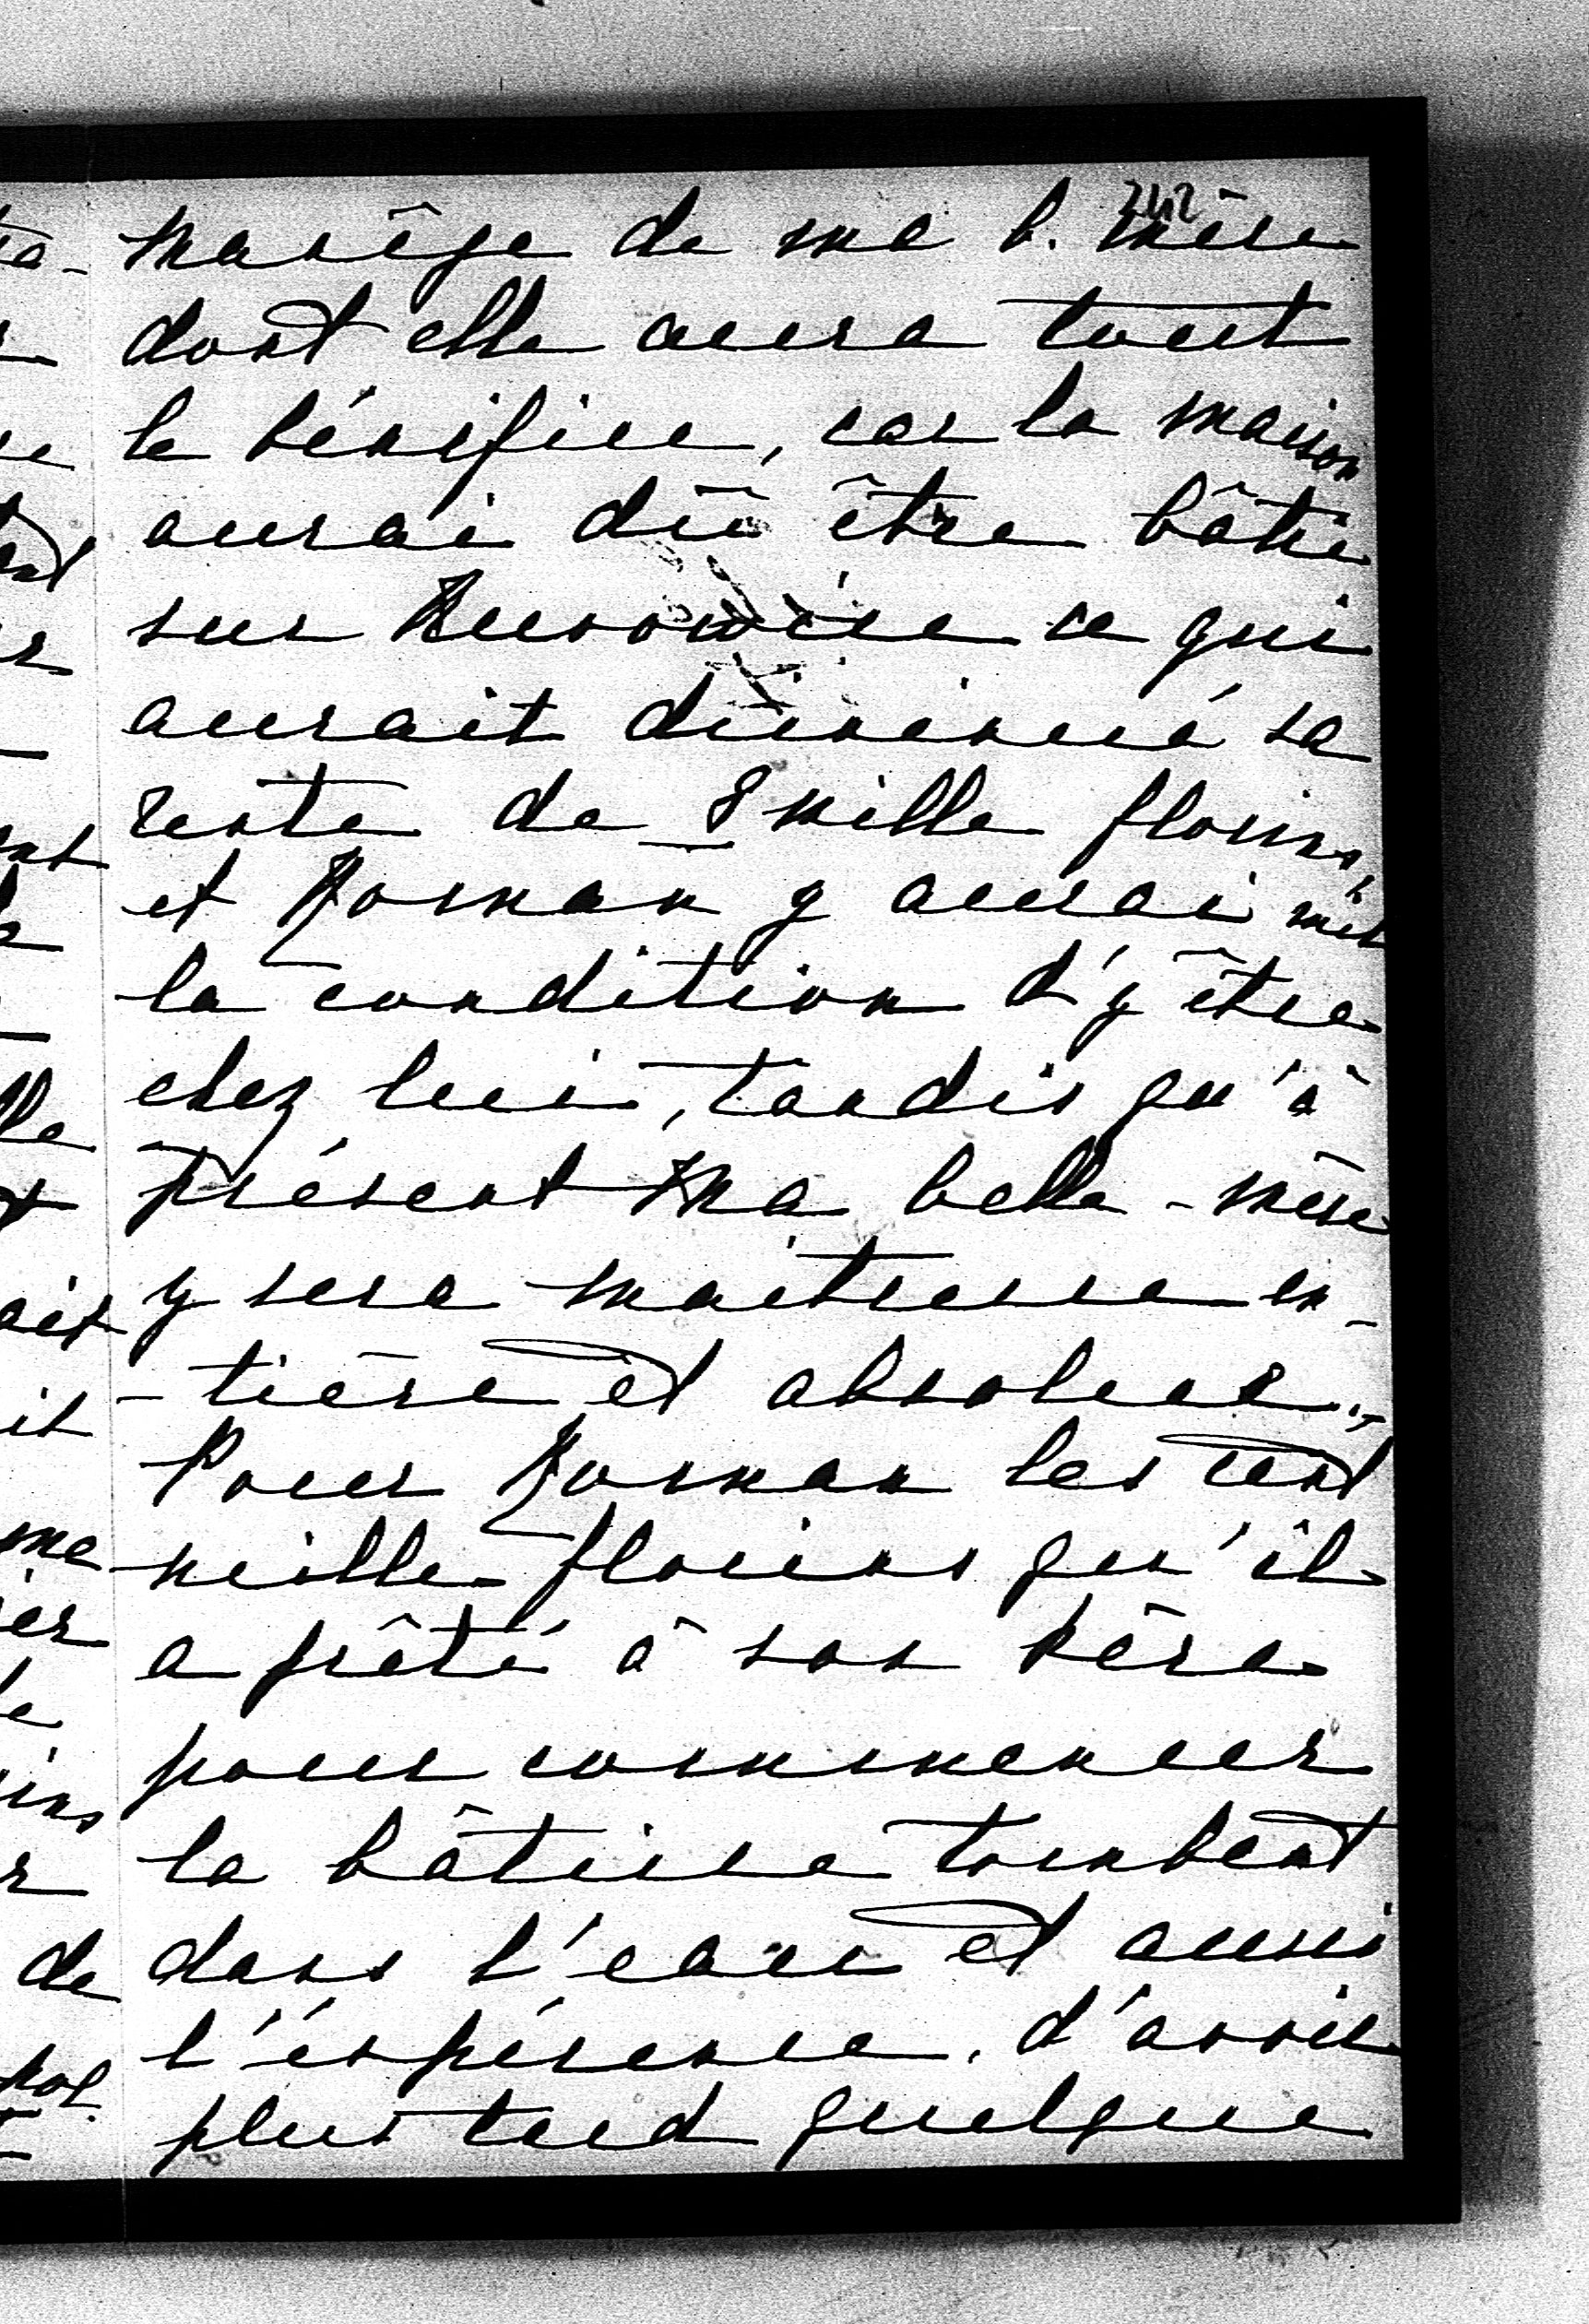 242
manêge de ma b. mère
dont elle aura tout
le bénifice, car la maison
aurai dû être bâtie
sur ce qui
aurait diminué sa
rente de 8 mille florins,
et Roman y aurai mit
la condition d'y être
chez lui, tandis qu'à
présent ma belle-mère
y sera maitresse en-
-tière et absolue.
Pour Roman les cent
mille florins qu'il
a prêté à son père
pour commencer
la bâtisse tombent
dans l'eau et aussi
l'éspérence, d'avoir
plus tard quelque